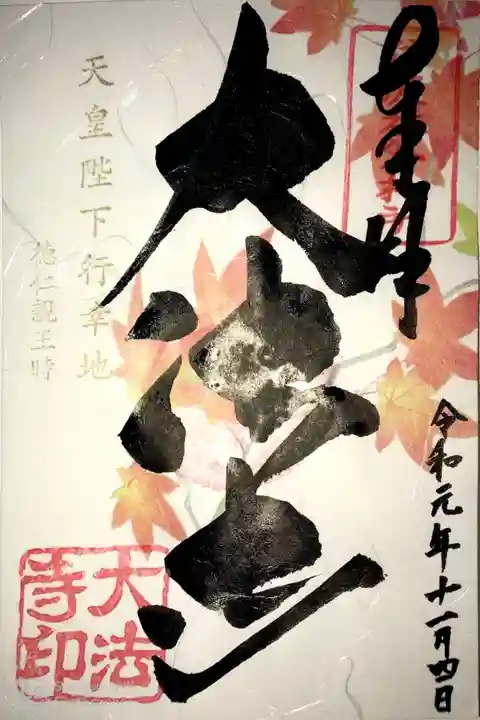 奉拝
令和元年十一月四日
大法寺
天皇陛下行幸地
徳仁親王時
大法
寺印